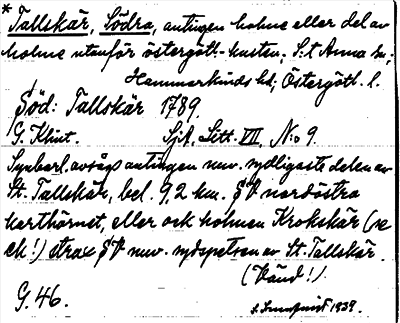 * Tallskär, Södra, antingen holme eller del av
holme utanför östergötl. kusten, S:t Anna sn;
Hammarkinds hd; Östergötl. l.
Söd: Tallskär 1789.
G. Klint. Sjk. Litt. VII, N:o 9.
Synbarl. avsågs antingen nuv. sydligaste delen av
St. Tallskär, bel. 9,2 km. SV nordöstra
karthörnet, eller ock holmen Krokskär (se
ek!) strax SV nuv. sydspetsen av St. Tallskär.
(Vänd!).
G. 46.
1939.